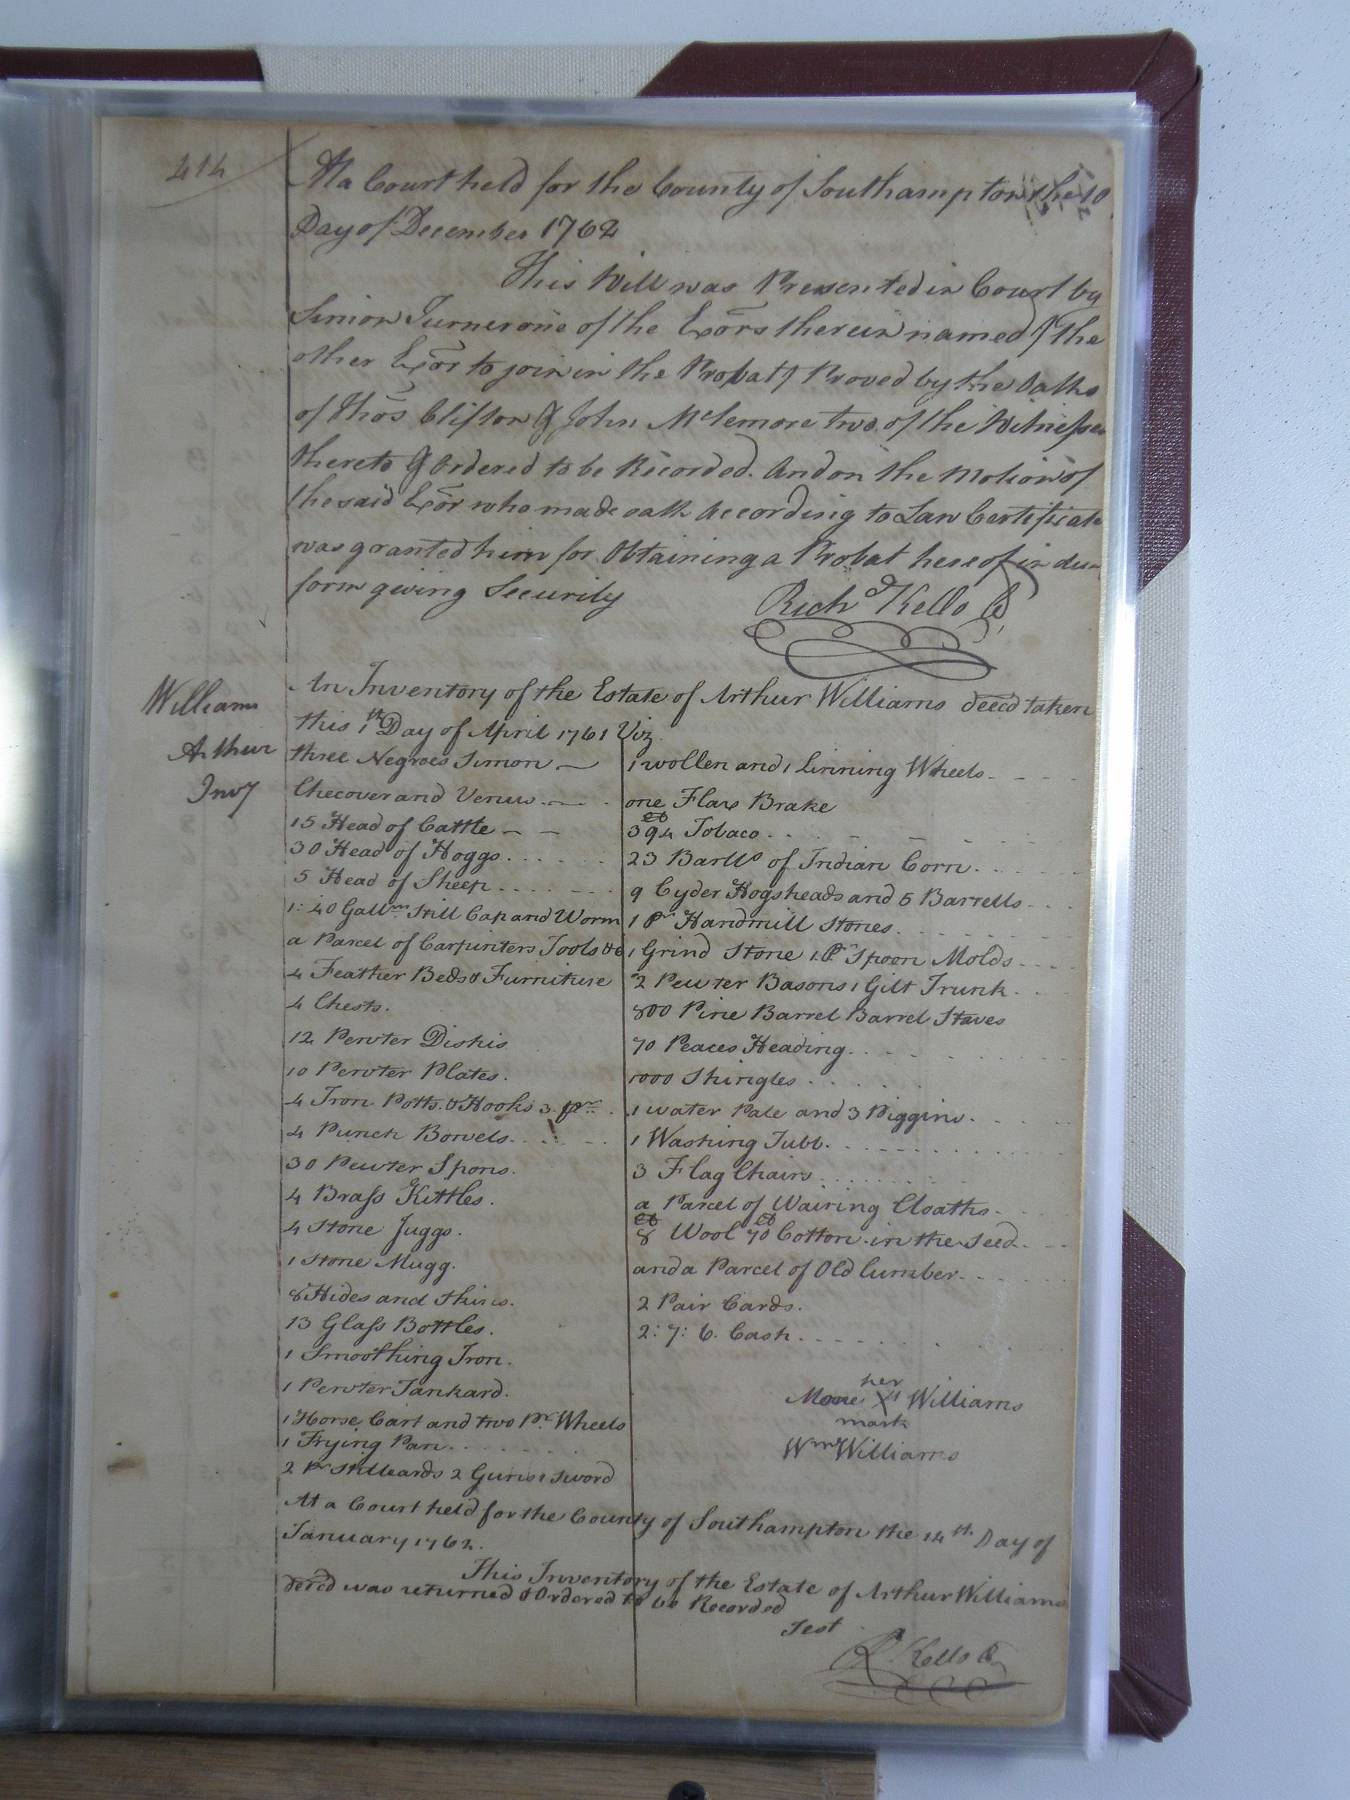 414
At a Court held for the County of Southampton the 10
Day of December 1762
This Will was Presented in Court by
Simon Turner one of the Exors therein named the
other Exor to join in the Probat & Proved by the Oaths
of Thos Clifton & John McLemore two of the Witnesses
thereto & Ordered to be Recorded. And on the Motion of
the said Exor who made oath According to Law Certificate
was granted him for Obtaining a Probat hereof in due
form giving Security
Richd Kello
Williams
Arthur
Invy
An Inventory of the Estate of Arthur Williams deced taken
this 1th Day of April 1761 Viz
three Negroes Simon
Checover and Venus
15 Head of Cattle
30 Head of Hoggs
5 Head of Sheep
1: 40 Galln Still Cap and Worm
a Parcel of Carpinters Tools &c
4 Feather Beds & Furniture
4 Chests.
12 Pewter Dishis
10 Pewter Plates.
4 Iron Potts. & Hooks 3 pr
4 Punch Bowels
30 Pewter Spons.
4 Brass Kittles.
4 Stone Juggs.
1 Stone Mugg.
8 Hides and Skins.
13 Glass Bottles.
1 Smoothing Iron.
1 Pewter Tankard.
1 Horse Cart and two Pr. Wheels
1 Frying Pan
2 Pr Stilleards 2 Guns 1 Sword
1 wollen and 1 Linning Wheels
one Flax Brake
394 lb Tobaco
23 Barlls of Indian Corn
9 Cyder Hogsheads and 5 Barrells
1 Pr Handmill Stones
1 Grind Stone 1 Pr Spoon Molds
2 Pewter Basons 1 Gilt Trunk
800 Pine Barrel Barrel Staves
70 Peaces Heading
1000 Shingles
1 water Pale and 3 Piggins
1 Washing Tubb.
3 Flag Chairs
a Parcel of Wairing Cloaths
8 lb Wool 70 lb Cotton in the Seed
and a Parcel of Old lumber
2 Pair Cards.
2: 7: 6. Cash
her
X Williams
mark
Wm Williams
At a Court held for the County of Southampton the 14th Day of
January 1762.
This Inventory of the Estate of Arthur Williams
deced was returned & Ordered to be Recorded
Test
R Kello